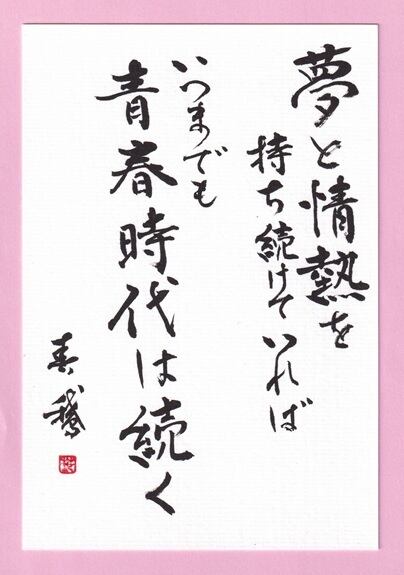 夢と情熱を
持ち続けていれば
いつまでも
青春時代は続く
春鵞